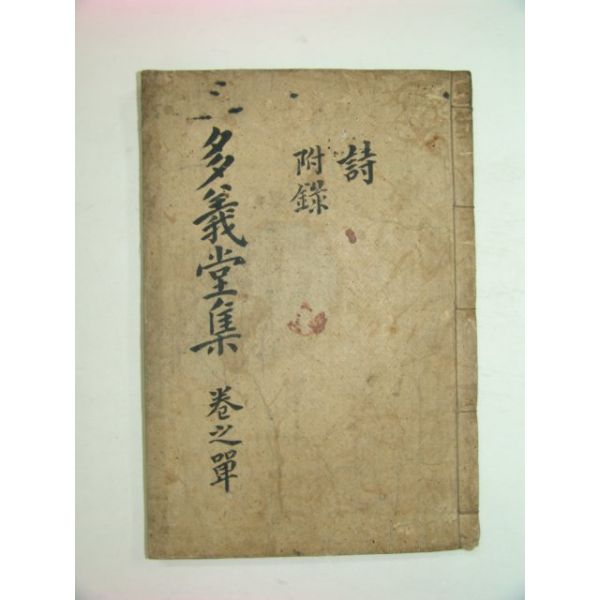 詩
附錄
三多義堂集 卷之單